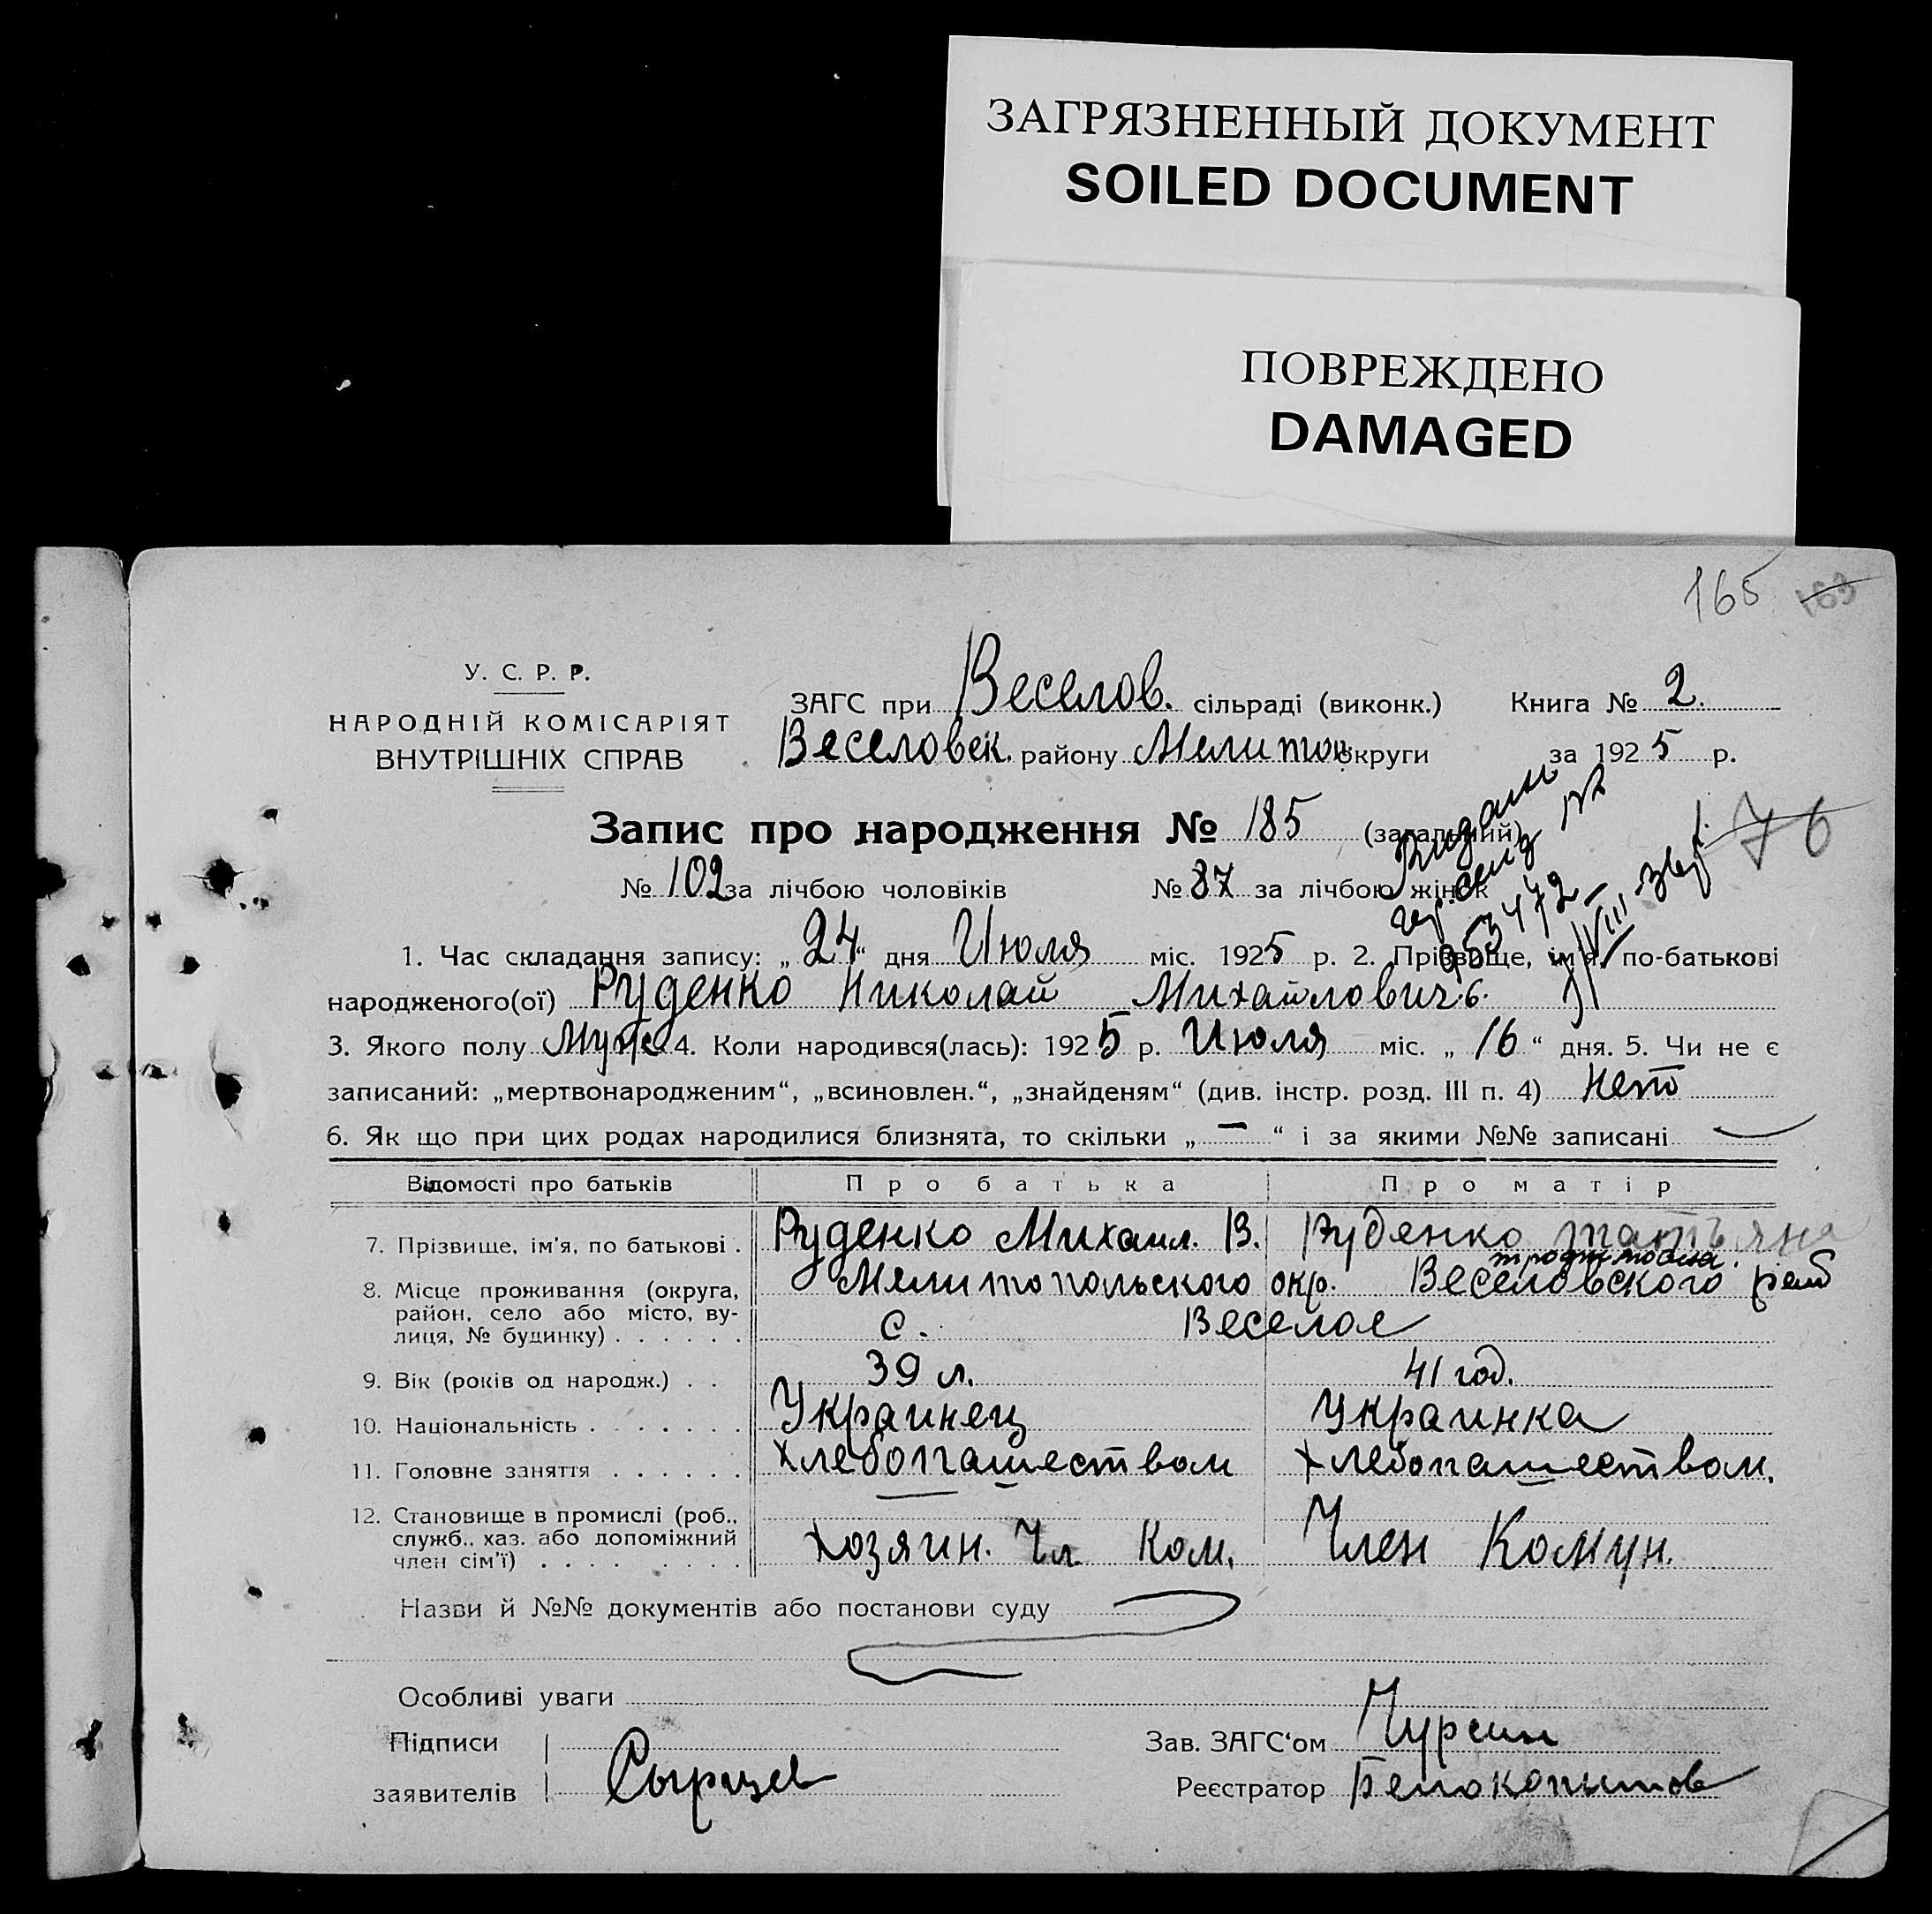 ЗАГРЯЗНЕННЫЙ ДОКУМЕНТ
SOILED DOCUMENT
ПОВРЕЖДЕНО
DAMAGED
165 163
У. С. Р. Р.
НАРОДНІЙ КОМІСАРІЯТ
ВНУТРІШНІХ СПРАВ
ЗАГС при Веселов. сільраді (виконк.) Книга № 2.
Веселовск. району Мелитоп. округи за 1925 р.
Запис про народження № 185 (загальний)
76
№ 102 за лічбою чоловіків № 87 за лічбою жінок
1. Час складання запису: „24“ дня Июля міс. 1925 р. 2. Прізвище, ім'я, по-батькові
народженого(ої) Руденко Николай Михайлович
3. Якого полу Муж. 4. Коли народився(лась): 1925 р. Июля міс. „16“ дня. 5. Чи не є
записаний: „мертвонародженим“, „всиновлен.“, „знайденям“ (див. інстр. розд. III п. 4) Нет
6. Як що при цих родах народилися близнята, то скільки „—“ і за якими №№ записані —
Відомості про батьків Про батька Про матір
7. Прізвище, ім'я, по батькові . Руденко Михаил. В. Руденко Татьяна
8. Місце проживання (округа, район, село або місто, вулиця, № будинку) . . . . . . Мелитопольского окр. Веселовского
с. Веселое
9. Вік (років од народж.) . . 39 л. 41 год.
10. Національність . . . . . . . Украинец Украинка
11. Головне заняття . . . . . . Хлебопашеством Хлебопашеством.
12. Становище в промислі (роб., служб., хаз. або допоміжний член сім'ї) . . . . . . . . Хозяин. Чл. Ком. Член Комун.
Назви й №№ документів або постанови суду
Особливі уваги
Підписи
заявителів Сырцев
Зав. ЗАГС‘ом Чурсин
Реєстратор Белокопытов